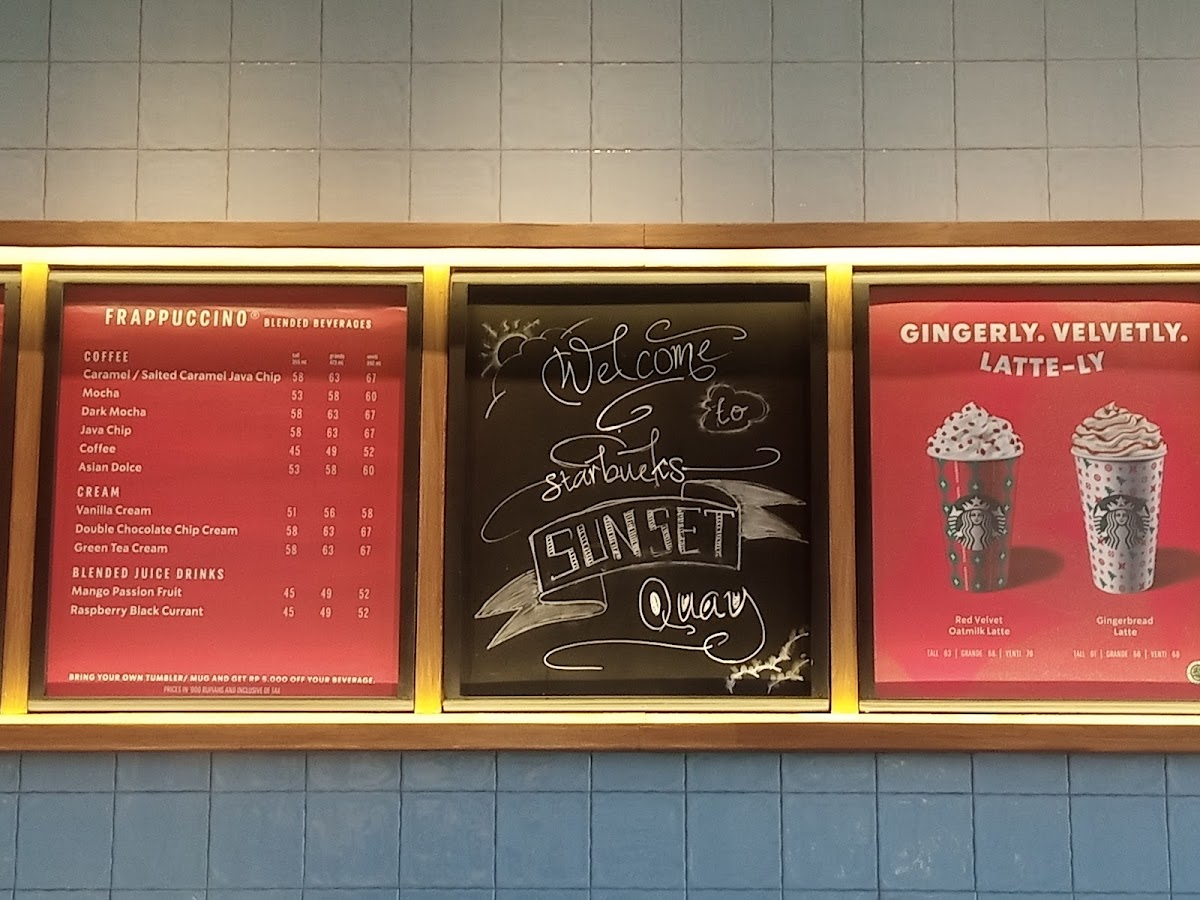 FRAPPUCCINO® BLENDED BEVERAGES
COFFEE tall grande venti
Caramel / Salted Caramel Java Chip 58 63 67
Mocha 53 58 60
Dark Mocha 58 63 67
Java Chip 58 63 67
Coffee 45 49 52
Asian Dolce 53 58 60
CREAM
Vanilla Cream 51 56 58
Double Chocolate Chip Cream 58 63 67
Green Tea Cream 58 63 67
BLENDED JUICE DRINKS
Mango Passion Fruit 45 49 52
Raspberry Black Currant 45 49 52
BRING YOUR OWN TUMBLER/ MUG AND GET RP 5.000 OFF YOUR BEVERAGE.
PRICES IN '000 RUPIAHS AND INCLUSIVE OF TAX
Welcome
to
starbucks
SUNSET
Quay
GINGERLY. VELVETLY.
LATTE-LY
Red Velvet
Oatmilk Latte
TALL 63 | GRANDE 68 | VENTI 70
Gingerbread
Latte
TALL 61 | GRANDE 66 | VENTI 68